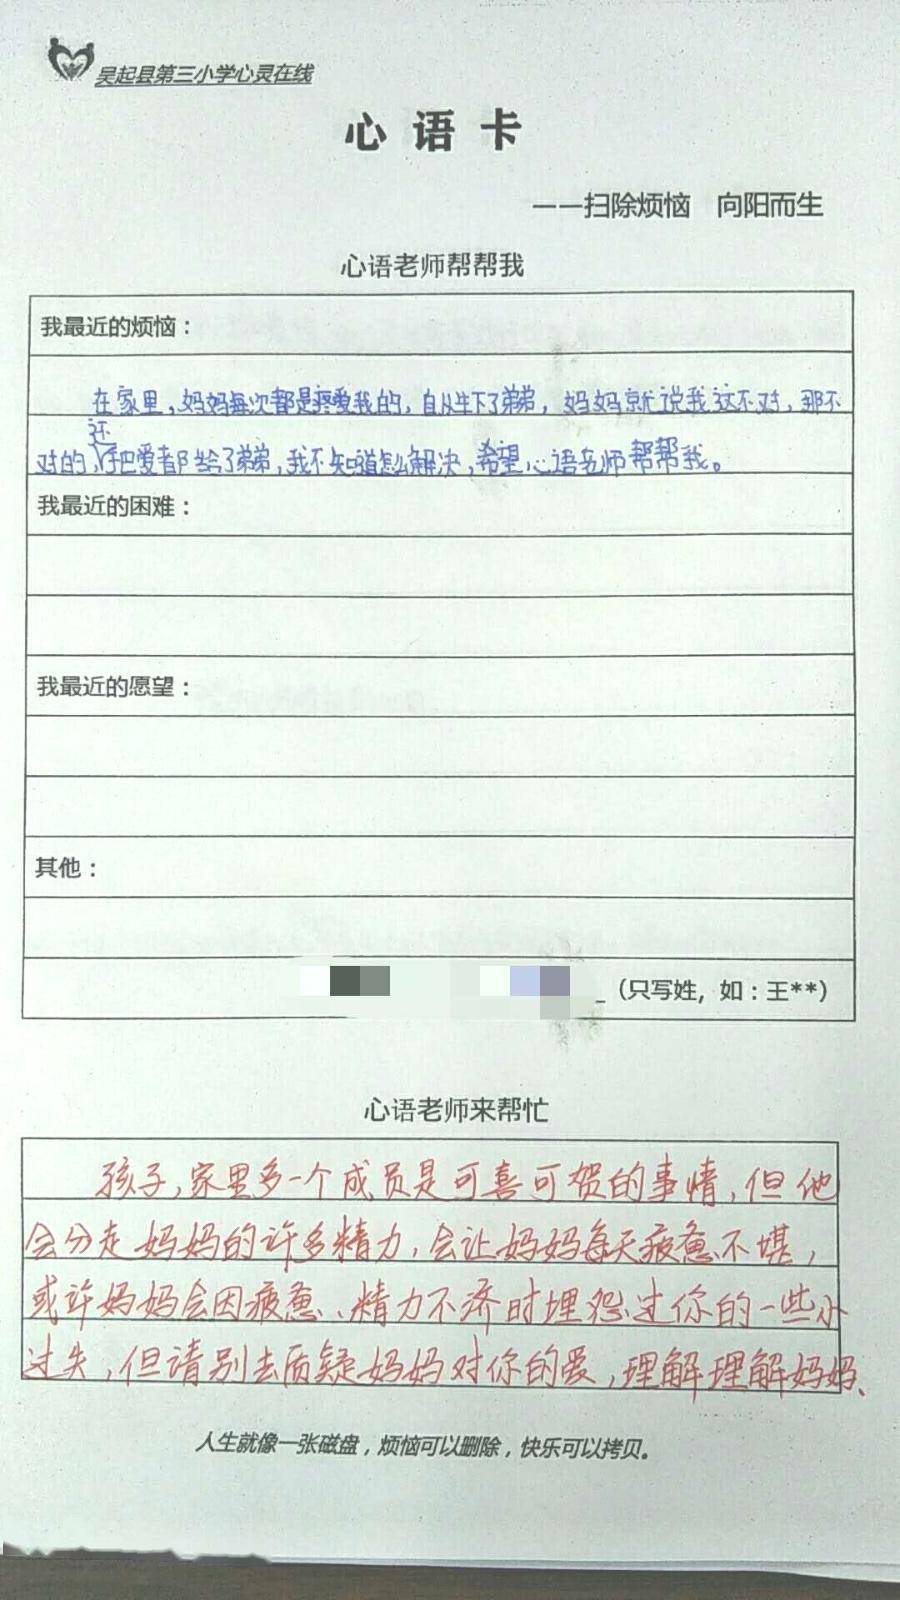 吴起县第三小学心灵在线
心语卡
——扫除烦恼 向阳而生
心语老师帮帮我
我最近的烦恼：
在家里，妈妈每次都是疼爱我的，自从生下了弟弟，妈妈就说我这不对，那不
还
对的，把爱都给了弟弟，我不知道怎么解决，希望心语老师帮帮我。
我最近的困难：
我最近的愿望：
其他：
_（只写姓，如：王**）
心语老师来帮忙
孩子，家里多一个成员是可喜可贺的事情，但他
会分走妈妈的许多精力，会让妈妈每天疲惫不堪，
或许妈妈会因疲惫、精力不济时埋怨过你的一些小
过失，但请别去质疑妈妈对你的爱，理解理解妈妈、
人生就像一张磁盘，烦恼可以删除，快乐可以拷贝。